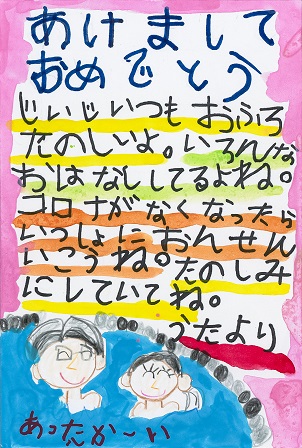 あけまして
おめでとう
じいじいつもおふろ
たのしいよ。いろんな
おはなししてるよね。
コロナがなくなったら
いっしょにおんせん
いこうね。たのしみ
にしていてね。
うたより
あったか～い